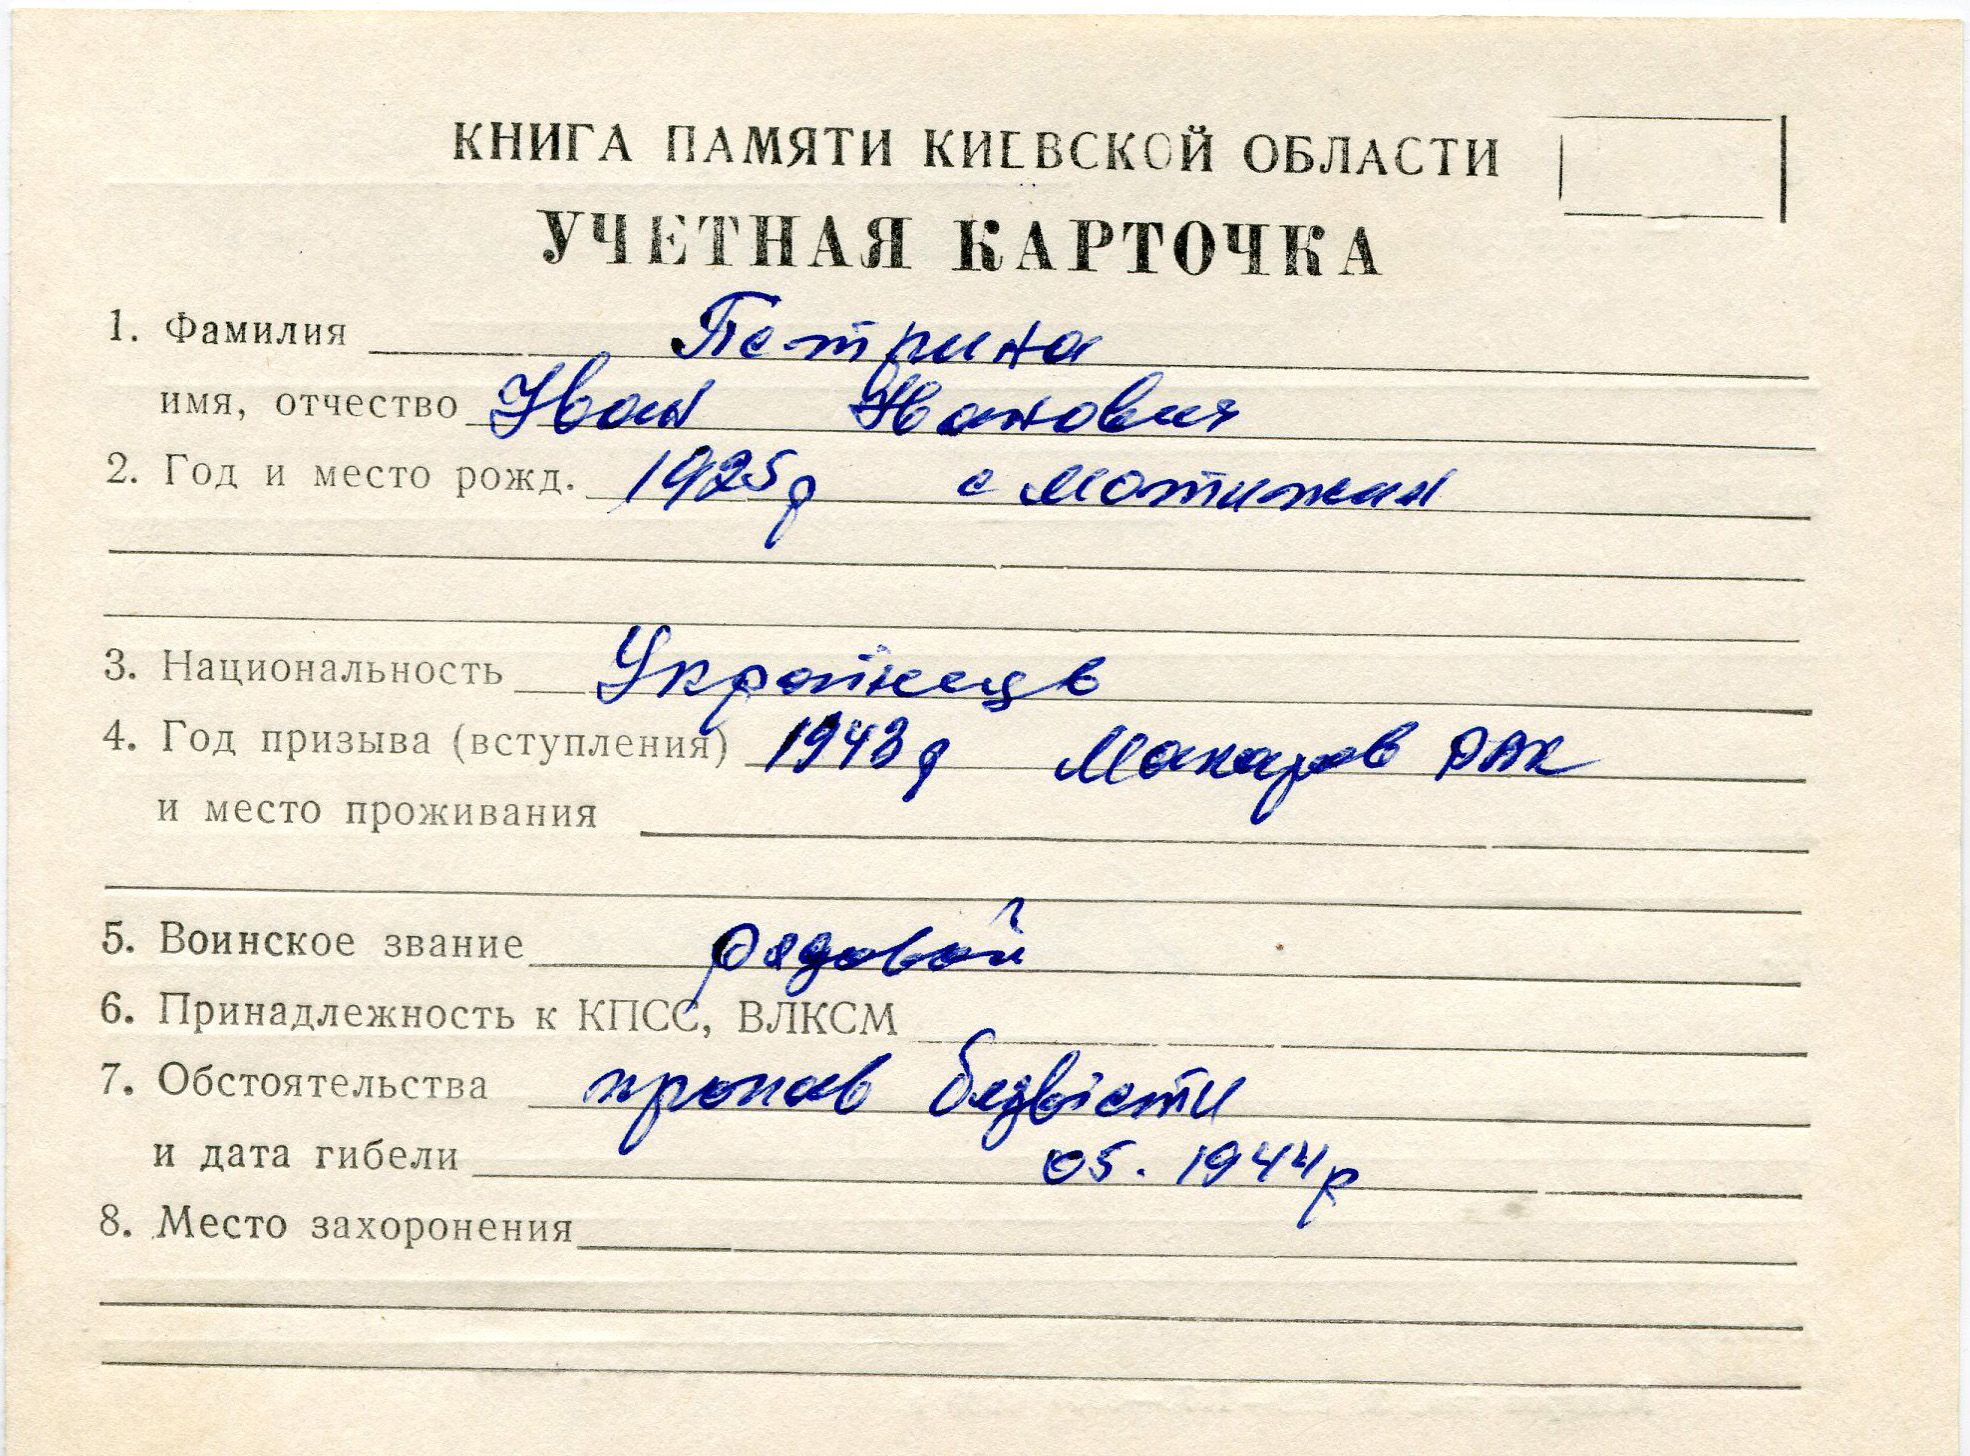 КНИГА ПАМЯТИ КИЕВСКОЙ ОБЛАСТИ
УЧЕТНАЯ КАРТОЧКА
1. Фамилия Петрина
имя, отчество Иван Иванович
2. Год и место рожд. 1925р с Мотижин
3. Национальность Українець
4. Год призыва (вступления) 1943р Макаров РВК
и место проживания
5. Воинское звание рядовой
6. Принадлежность к КПСС, ВЛКСМ
7. Обстоятельства пропав безвісти
и дата гибели 05.1944р
8. Место захоронения